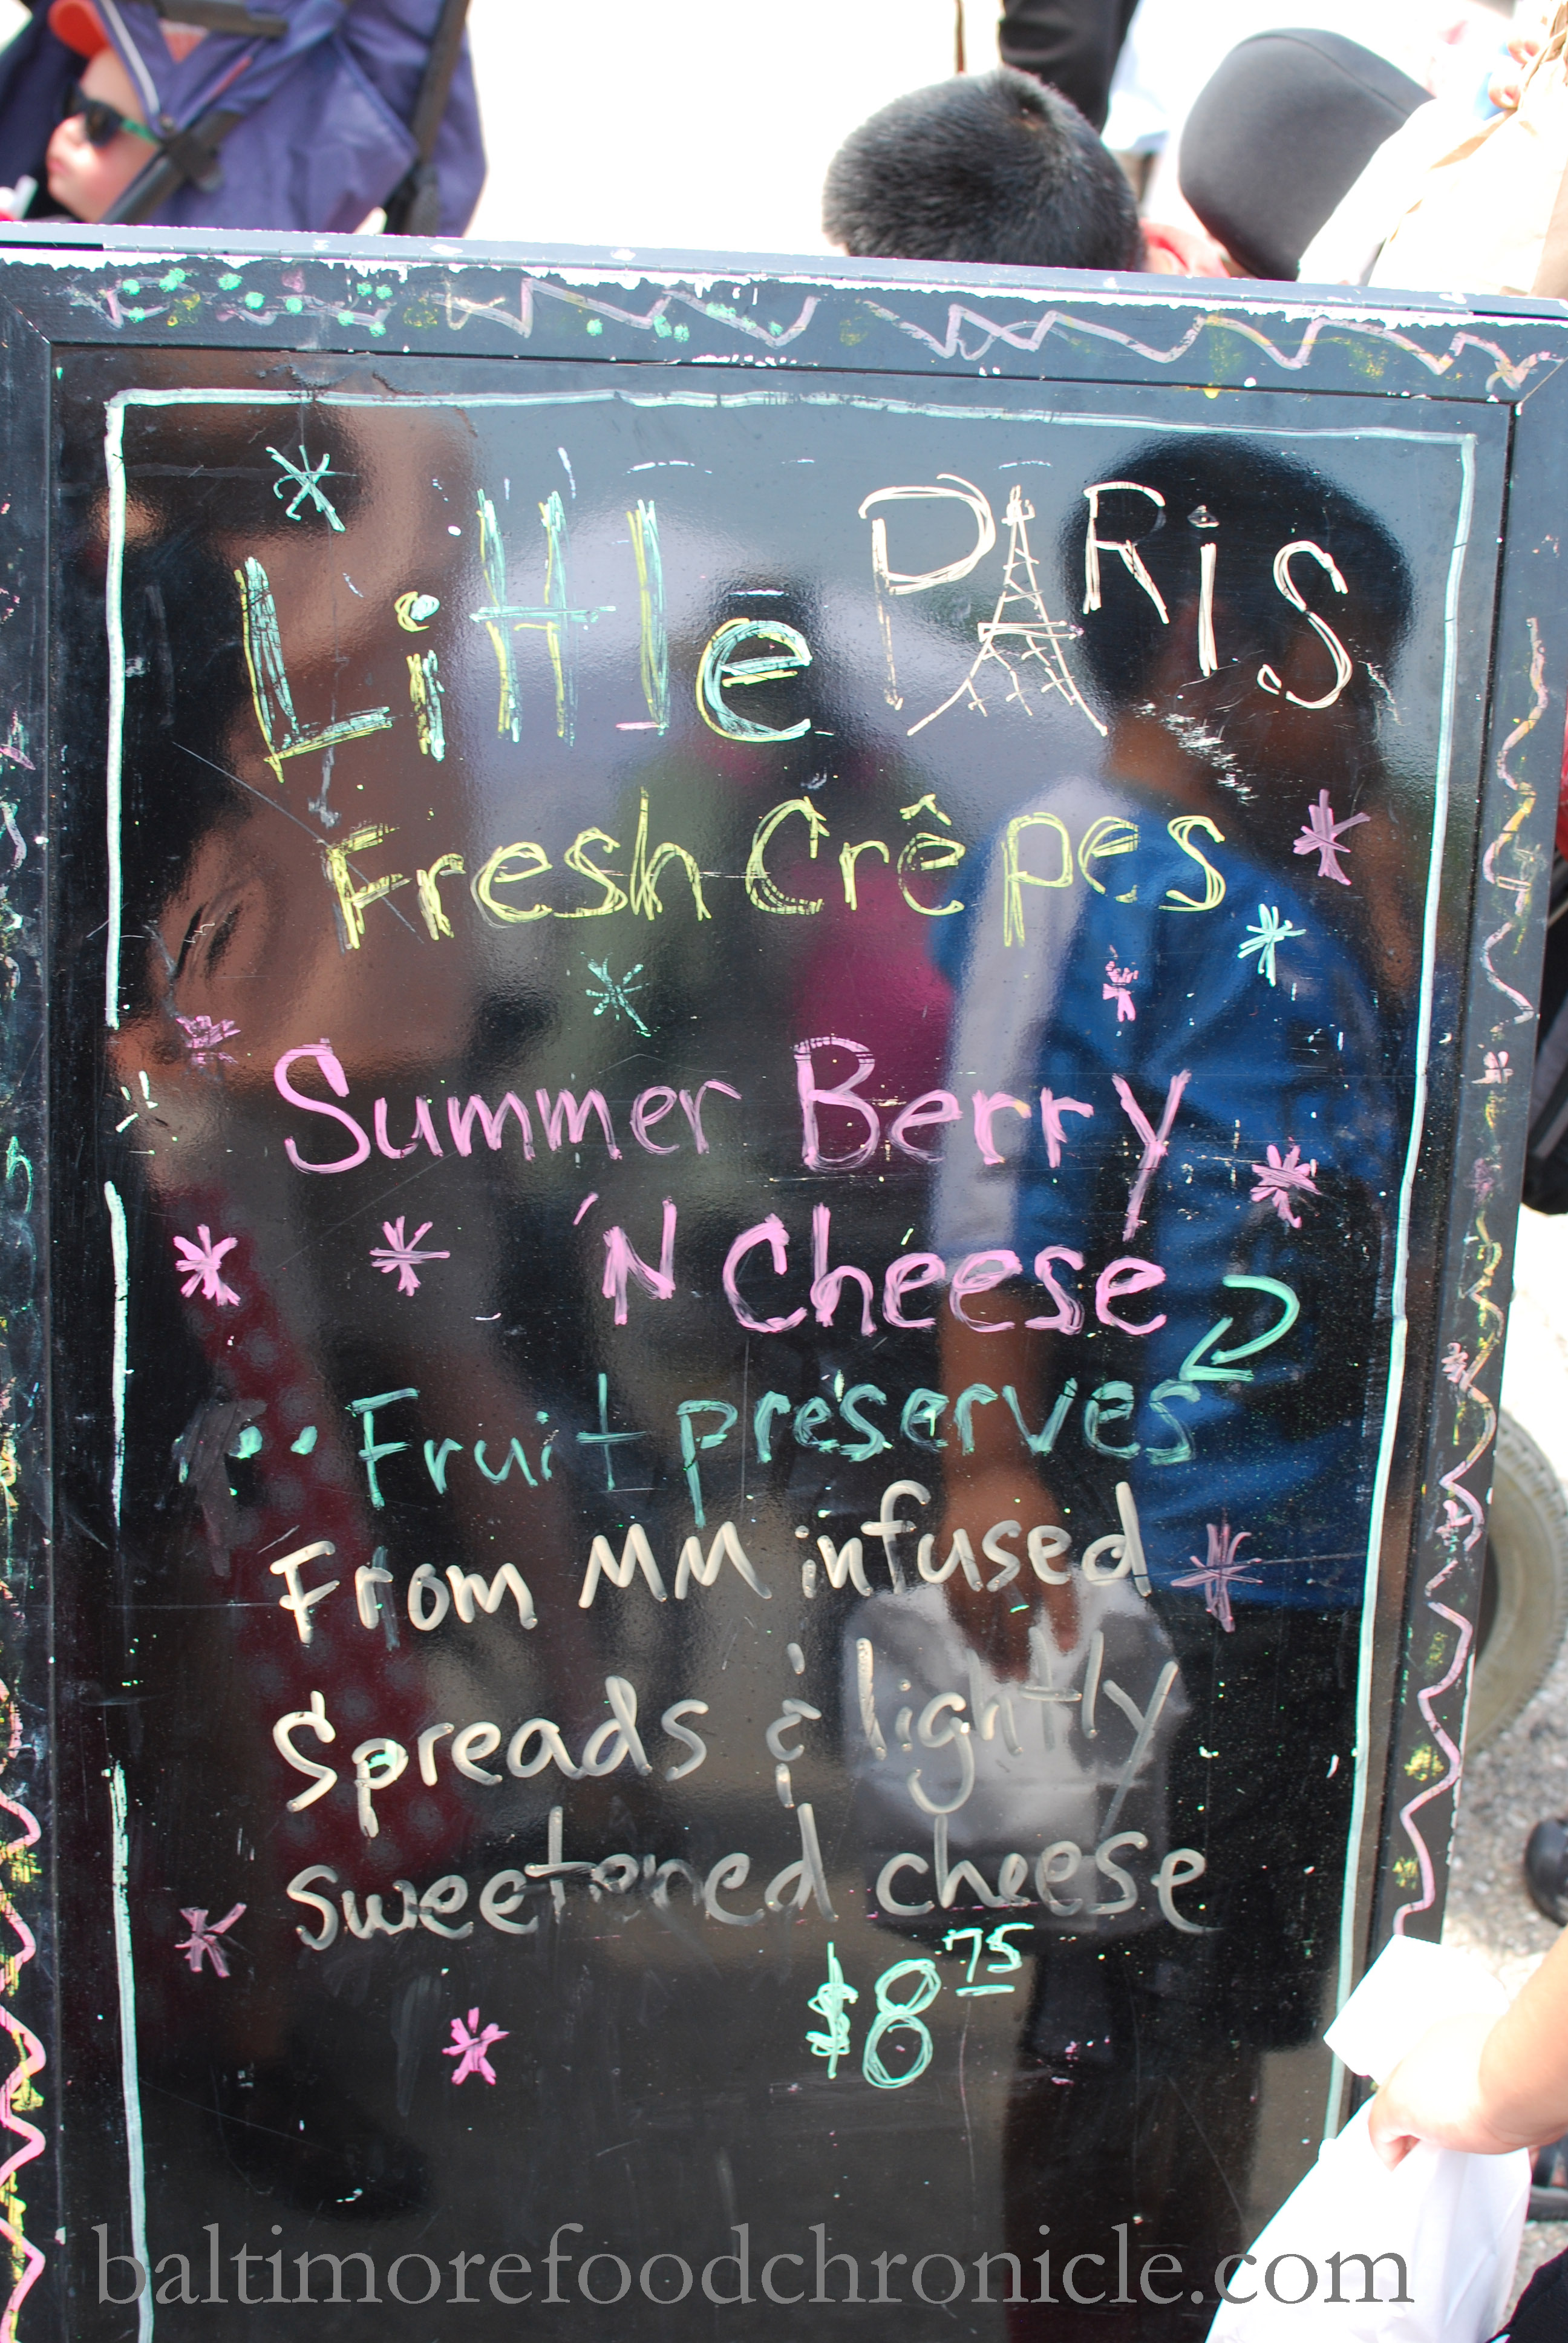 Little PARiS
Fresh Crêpes
Summer Berry
'N Cheese
Fruit preserves
From MM infused
Spreads & lightly
sweetened cheese
$8 75
baltimorefoodchronicle.com